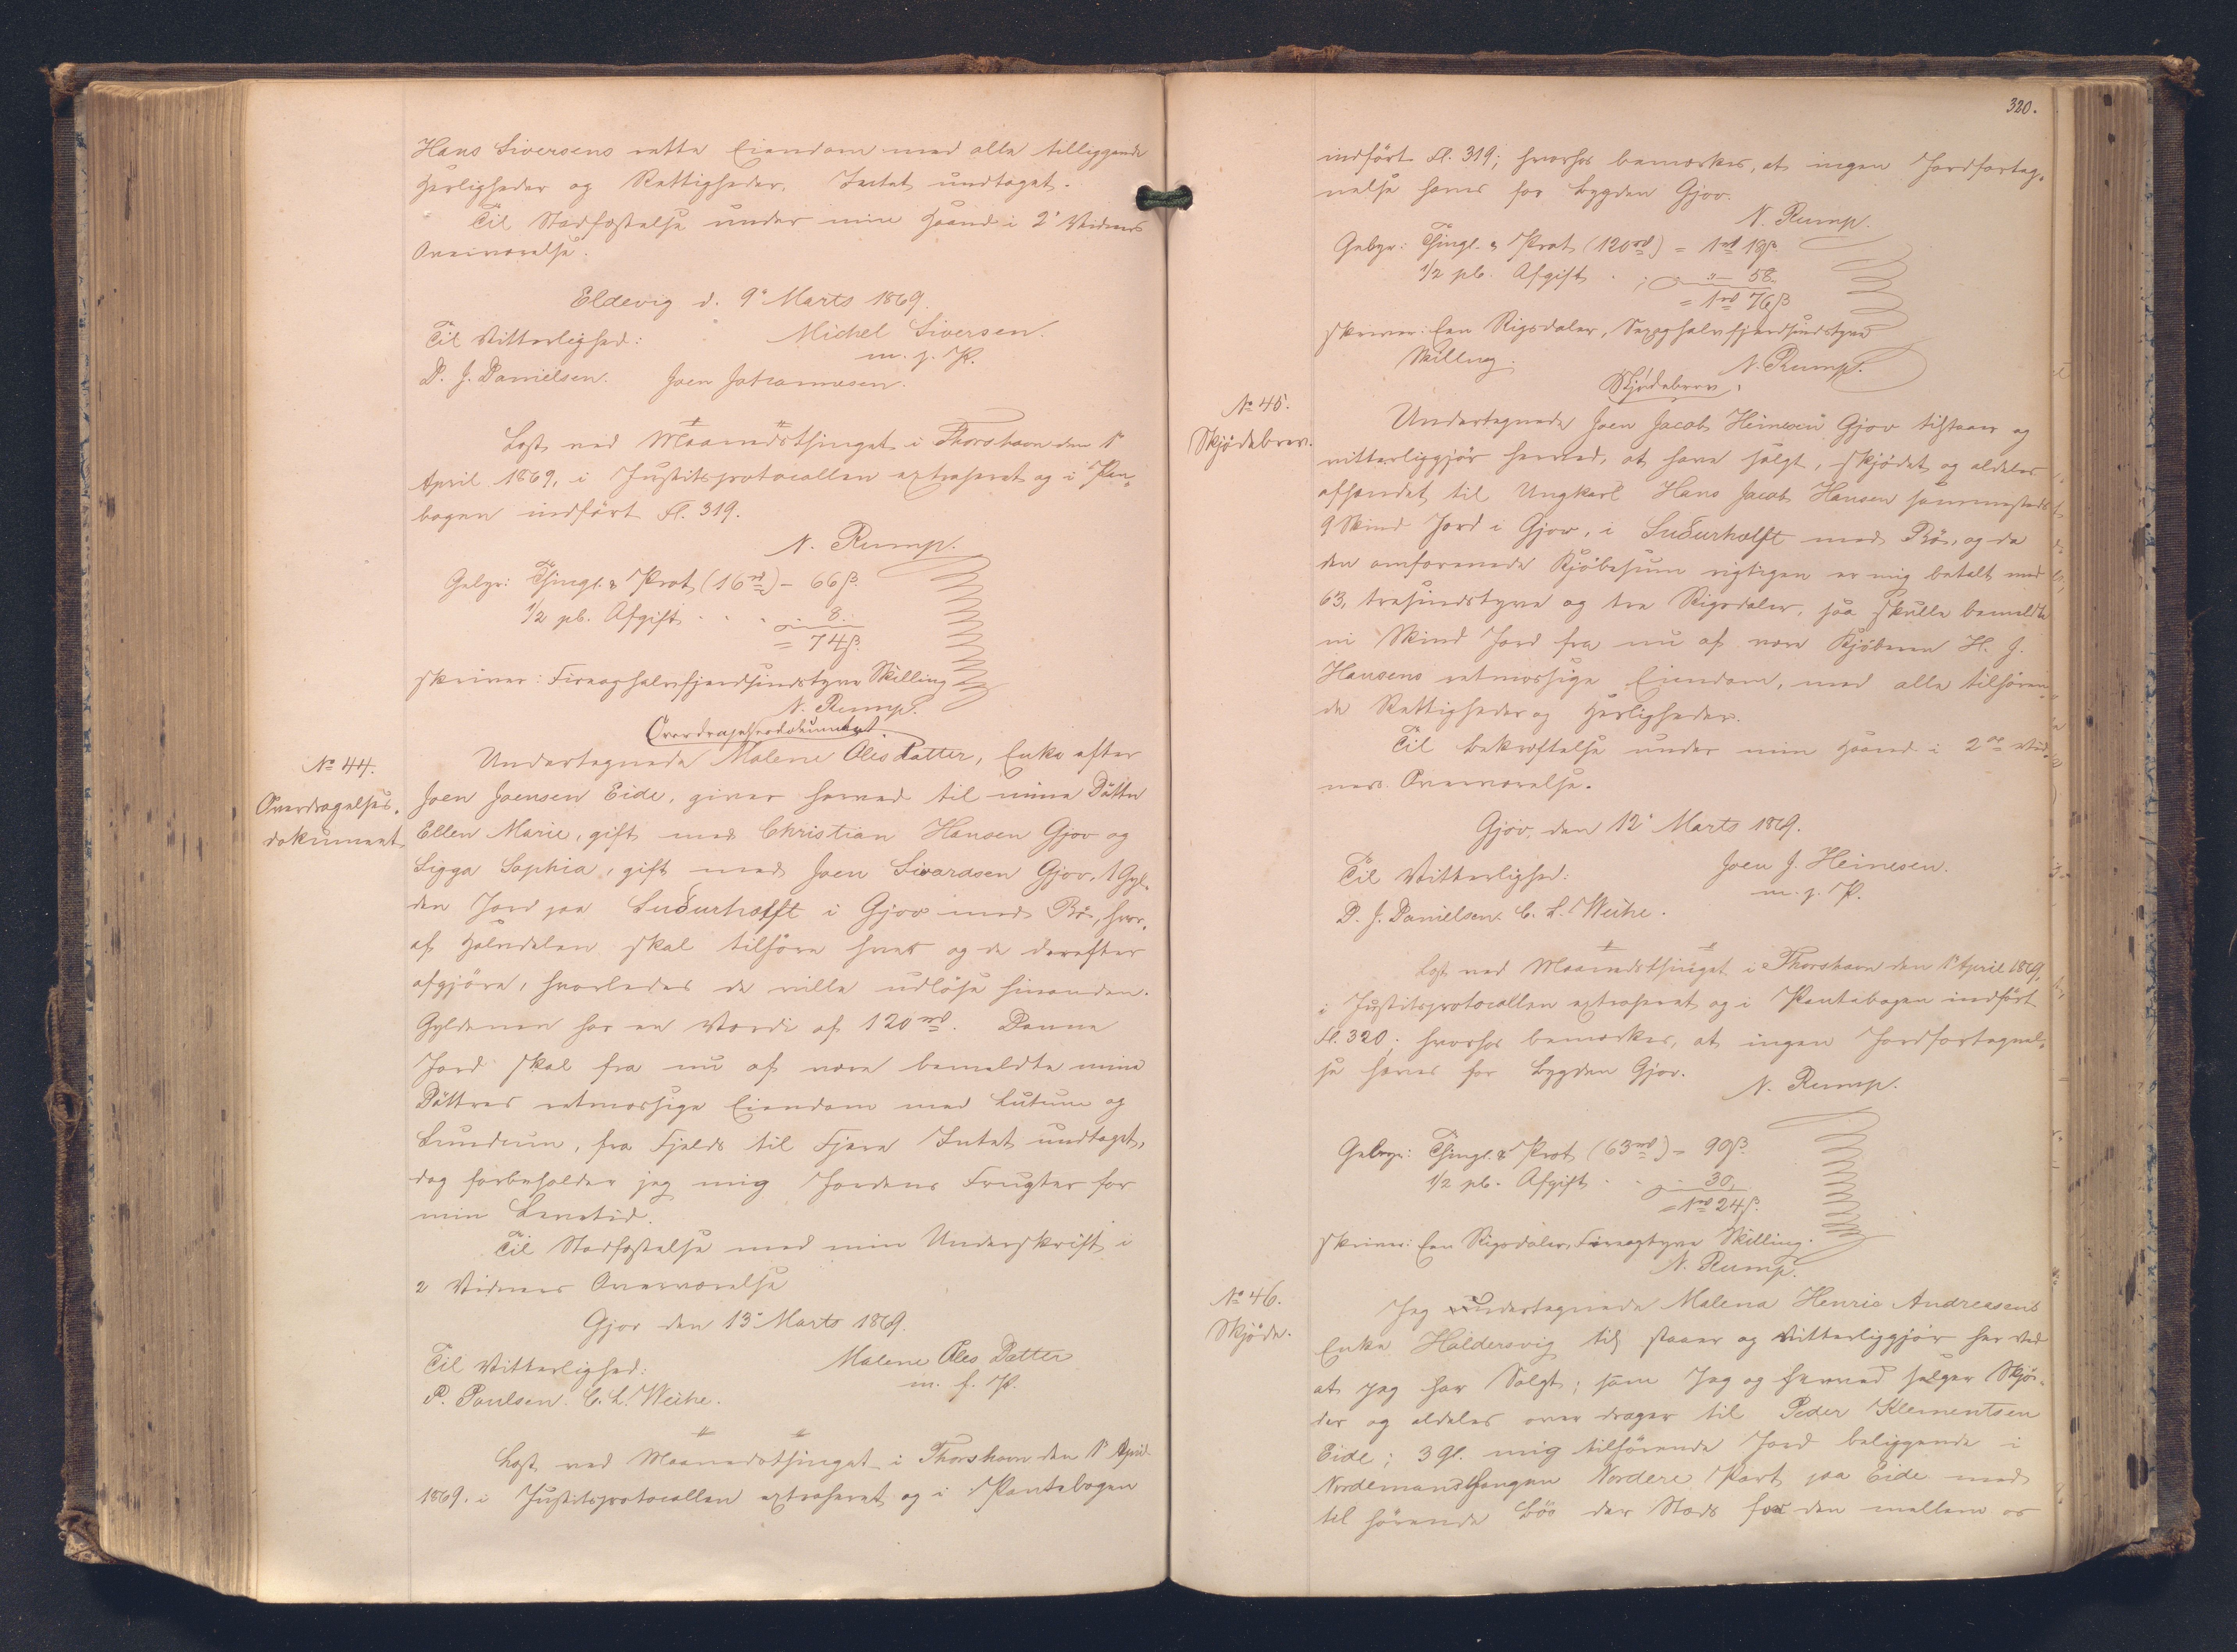 Hans Siversens rette Eiendom med alle tilliggende
Herligheder og Rettigheder, Intet undtaget.
Til Stadfæstelse under min Haand i 2 Vidners
Overværelse.
Eldevig d. 9 Marts 1869.
Til Vitterlighed: Michel Siversen.
m. f. P.
D. J. Danielsen. Joen Johannesen.
Læst ved Maanedsthinget i Thorshavn den 1
April 1869, i Justitsprotocollen extraheret og i Pan-
bogen indført Fl. 319.
N. Rump.
Gebyr: Thingl. & Prot. (16 rd) – 66 ß.
1/2 pC. Afgift . . . 8.
= 74 ß.
skriver: Fireoghalvfjerdsindstyve Skilling
N. Rump.
Overdragelsesdokument.
No 44.
Overdragelses-
dokument
Undertegnede Malene Oles Datter, Enke efter
Joen Joensen Eide, giver herved til mine Døttre
Ellen Marie, gift med Christian Hansen Gjov og
Sigga Sophia, gift med Joen Sivardsen Gjov, 1 Gyl-
den Jord paa Suðurhalft i Gjov med Bø, hvor-
af Halvdelen skal tilhøre hver og de derefter
afgjøre, hvorledes de ville udløse hinanden.
Gyldenen har en Værdi af 120 rd. Denne
Jord skal fra nu af være bemeldte mine
Døttres retmæssige Eiendom med Lutum og
Lundum, fra Fjelds til Fjære Intet undtaget,
dog forbeholder jeg mig Jordens Frugter for
min Levetid.
Til Stadfæstelse med min Underskrift i
2 Vidners Overværelse
Gjov den 13 Marts 1869.
Til Vitterlighed: Malene Oles Datter
m. f. P.
P. Poulsen. C. L. Weihe.
Læst ved Maanedsthinget i Thorshavn den 1 April
1869, i Justitsprotocollen extraheret og i Pantebogen
320.
indført Fl. 319; hvorhos bemærkes, at ingen Jordforteg-
nelse haves for Bygden Gjov.
N. Rump.
Gebyr: Thingl. & Prot (120 rd) = 1 rd 18 ß
1/2 pC. Afgift . . 58
= 1 rd 76 ß
skriver: Een Rigsdaler, Sexoghalvfjerdsindstyve
Skilling. N. Rump.
Skjødebrev.
No 45.
Skjødebrev.
Undertegnede Joen Jacob Heinesen Gjov tilstaar og
vitterliggjør herved, at have solgt, skjødet og aldeles
afhændet til Ungkarl Hans Jacob Hansen sammesteds
9 Skind Jord i Gjov, i Suðurhalft med Bø, og da
den omforenede Kjøbesum rigtigen er mig betalt med
63, tresindstyve og tre Rigsdaler, saa skulle bemeldte
ni Skind Jord fra nu af være Kjøberen H. J.
Hansens retmæssige Eiendom, med alle tilhøren-
de Rettigheder og Herligheder.
Til Bekræftelse under min Haand i 2de Vid-
ners Overværelse.
Gjov, den 12 Marts 1869.
Til Vitterlighed: Joen J. Heinesen.
m. f. P.
D. J. Danielsen. C. L. Weihe.
Læst ved Maanedsthinget i Thorshavn den 1 April 1869,
i Justitsprotocollen extraheret og i Pantebogen indført
Fl. 320; hvorhos bemærkes, at ingen Jordfortegnel-
se haves for Bygden Gjov. N. Rump.
Gebyr: Thingl. & Prot (63 rd) = 90 ß.
1/2 pC. Afgift . . 30
= 1 rd 24 ß.
skriver: Een Rigsdaler, Fireogtyve Skilling.
N. Rump.
No 46.
Skjøde.
Jeg undertegnede Malena Henrie Andreasens
Enke Haldersvig til staaer og Vitterliggjør her ved
at jeg har Solgt; som Jeg og herved sælger Skjø-
der og aldeles over drager til Peder Klementsen
Eide; 3 Gl. mig tilhørende Jord beliggende i
Nordemanshaugen Nordere Part paa Eide med
til hørende Bøe der Steds for den mellem os